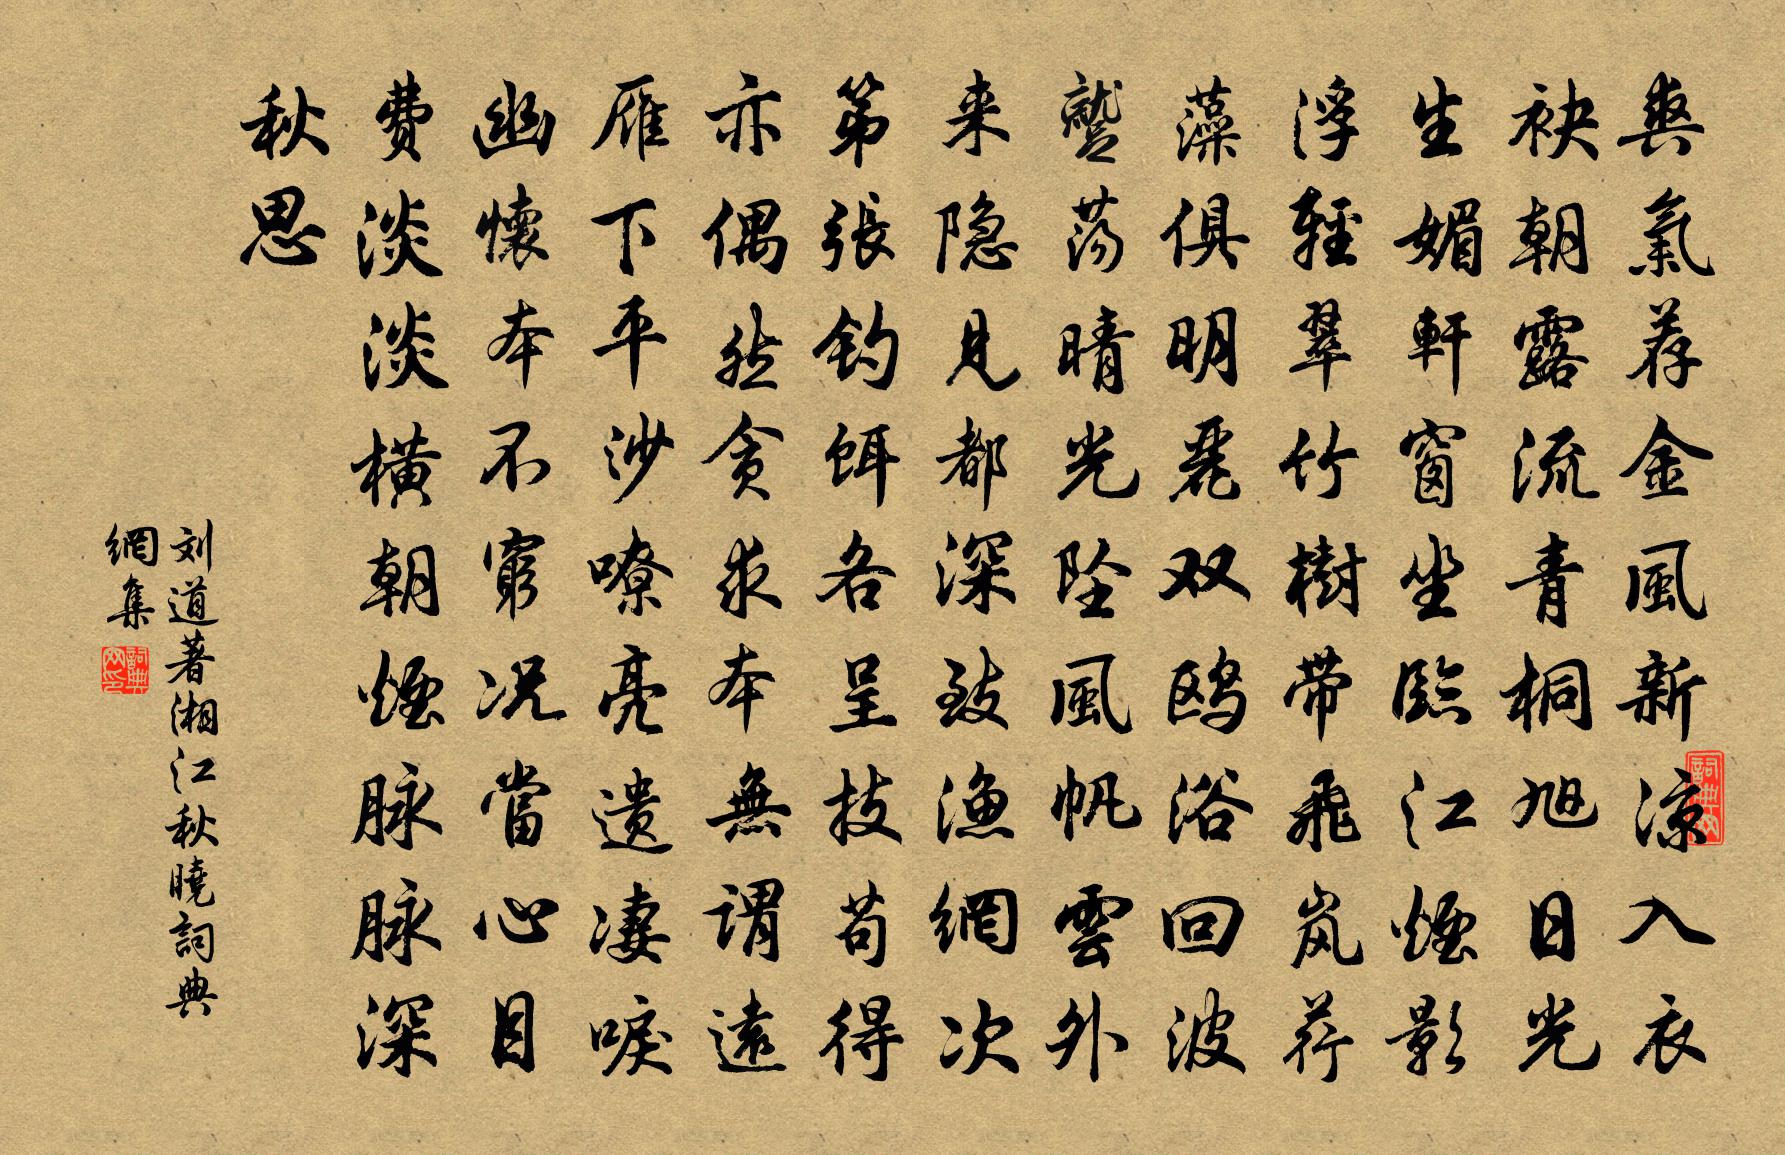 爽氣荐金風新凉入衣
袂朝露流青桐旭日光
生媚軒窗坐臨江煙影
浮輕翠竹樹带飛岚荇
藻俱明麗双鸥浴回波
鹫荡晴光坠風帆雲外
来隐見都深致漁網次
第張钓饵各呈技苟得
亦偶然贪求本無谓遠
雁下平沙嘹亮遗凄唳
幽懷本不窮况當心目
费淡淡橫朝煙脉脉深
秋思
刘道著湘江秋曉詞典
網集